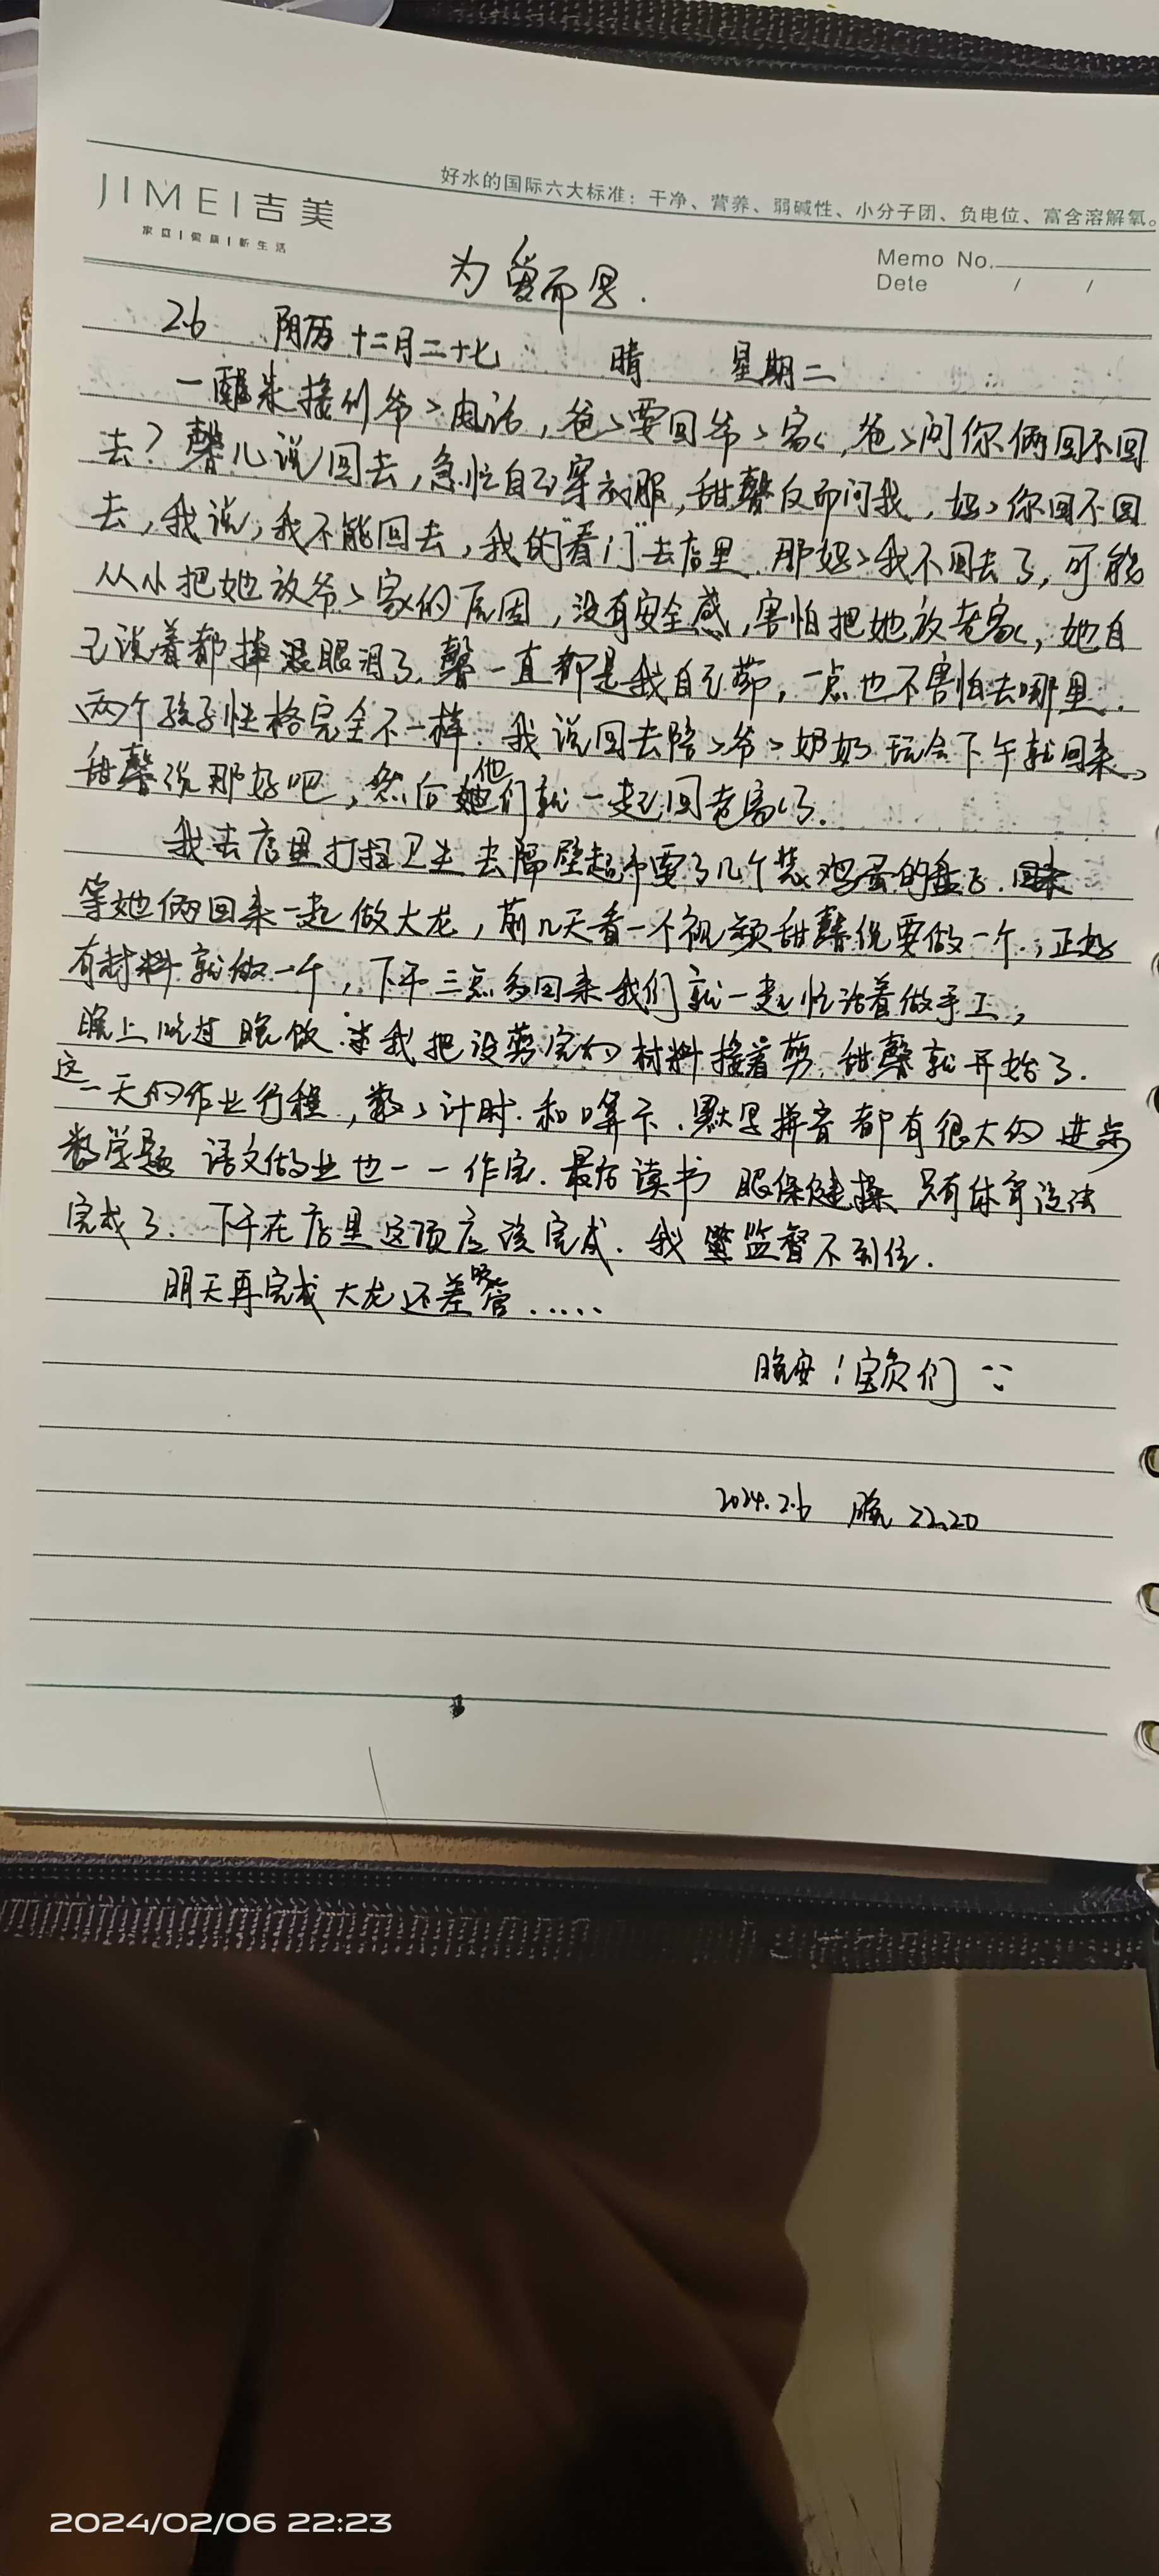 JIMEI吉美
家庭 | 健康 | 新生活
好水的国际六大标准：干净、营养、弱碱性、小分子团、负电位、富含溶解氧。
Memo No.
Dete / /
为爱而写.
2.6 阴历十二月二十七 晴 星期二
一醒来接到爷爷电话，爸爸要回爷爷家，爸爸问你俩回不回
去？馨儿说回去，急忙自己穿衣服，甜馨反而问我，妈妈你回不回
去，我说，我不能回去，我的"看门"去店里，那妈妈我不回去了，可能
从小把她放爷爷家的原因，没有安全感，害怕把她放老家，她自
己说着都掉眼泪了.馨一直都是我自己带，一点也不害怕去哪里.
两个孩子性格完全不一样.我说回去陪陪爷爷奶奶玩会下午就回来，
甜馨说那好吧，然后他们就一起回老家了.
我去店里打扫卫生去隔壁超市要了几个装鸡蛋的盘子.回来
等她俩回来一起做大龙，前几天看一个视频甜馨说要做一个，正好
有材料就做一个，下午三点多回来我们就一起忙活着做手工，
晚上吃过晚饭.我把没剪完的材料接着剪.甜馨就开始了.
这一天的作业行程，数数计时.和口算卡.默写拼音都有很大的进步
数学题 语文作业也一一作完.最后读书 眼保健操 只有体育没法
完成了.下午在店里这项应该完成.我监督不到位.
明天再完成大龙还差
晚安！宝贝们
2024.2.6 晚 22.20
2024/02/06 22:23